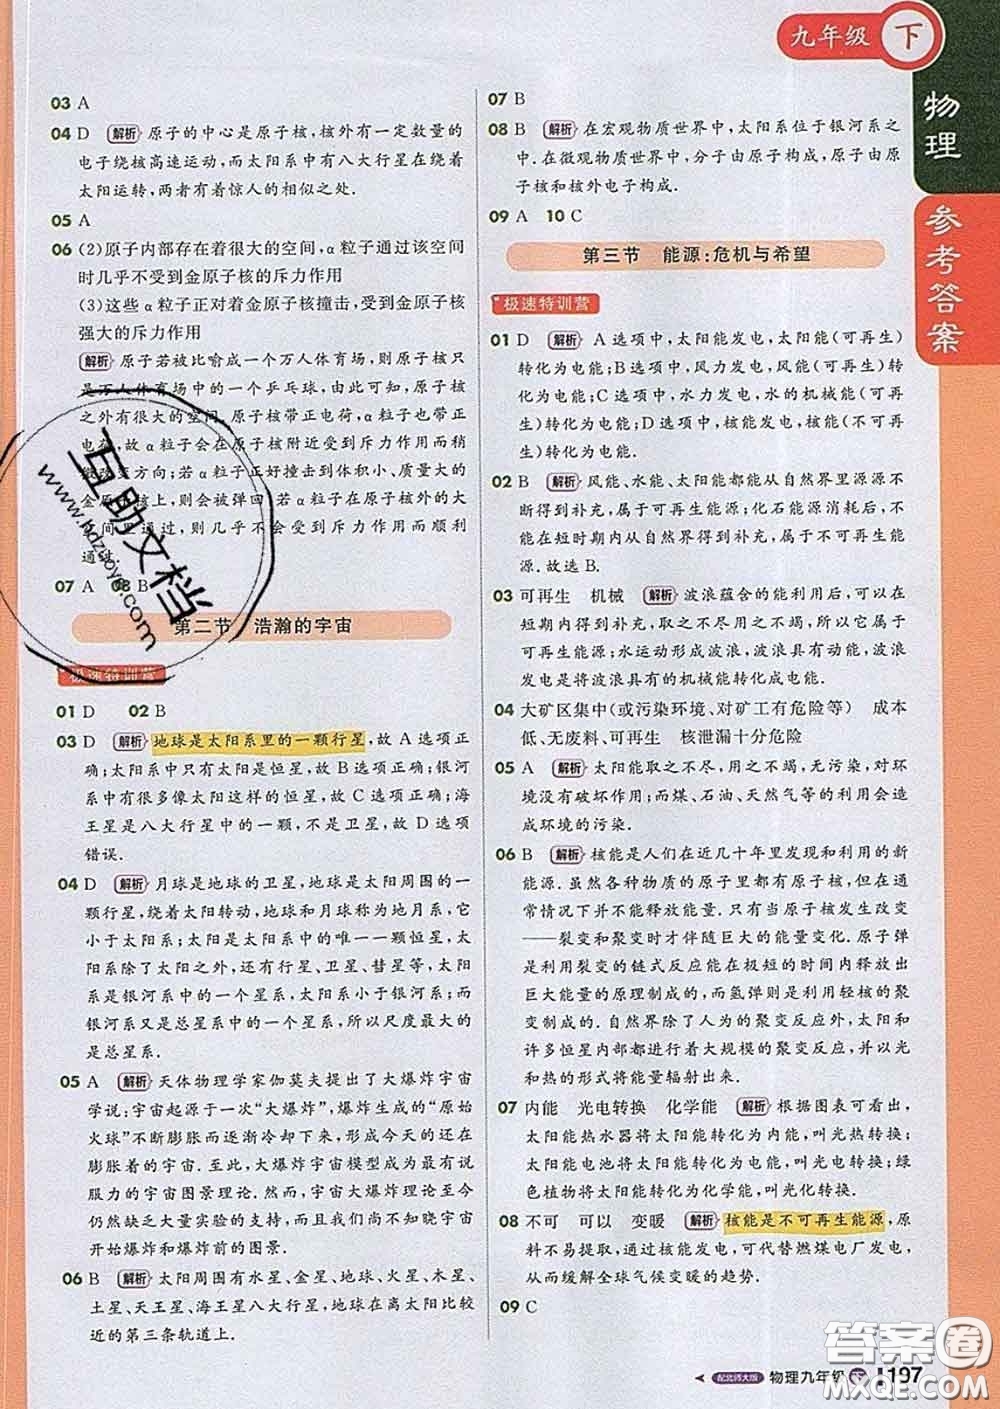 九年级 下
物理
参考答案
03 A
04 D 解析 原子的中心是原子核,核外有一定数量的
电子绕核高速运动,而太阳系中有八大行星在绕着
太阳运转,两者有着惊人的相似之处.
05 A
06 (2)原子内部存在着很大的空间,α粒子通过该空间
时几乎不受到金原子核的斥力作用
(3)这些α粒子正对着金原子核撞击,受到金原子核
强大的斥力作用
解析 原子若被比喻成一个万人体育场,则原子核只
是万人体育场中的一个乒乓球,由此可知,原子核
之外有很大的空间.原子核带正电荷,α粒子也带正
电荷,故α粒子会在原子核附近受到斥力作用而稍
微改变方向;若α粒子正好撞击到体积小、质量大的
金原子核上,则会被弹回.若α粒子在原子核外的大
空间里通过,则几乎不会受到斥力作用而顺利
通过.
07 A 08 B
第二节 浩瀚的宇宙
极速特训营
01 D 02 B
03 D 解析 地球是太阳系里的一颗行星,故A选项正
确;太阳系中只有太阳是恒星,故B选项正确;银河
系中有很多像太阳这样的恒星,故C选项正确;海
王星是八大行星中的一颗,不是卫星,故D选项
错误.
04 D 解析 月球是地球的卫星,地球是太阳周围的一
颗行星,绕着太阳转动,地球和月球称为地月系,它
小于太阳系;太阳是太阳系中的唯一一颗恒星,太
阳系除了太阳之外,还有行星、卫星、彗星等,太阳
系是银河系中的一个星系,太阳系小于银河系;而
银河系又是总星系中的一个星系,所以尺度最大的
是总星系.
05 A 解析 天体物理学家伽莫夫提出了大爆炸宇宙
学说;宇宙起源于一次“大爆炸”,爆炸生成的“原始
火球”不断膨胀而逐渐冷却下来,形成今天的还在
膨胀着的宇宙.至此,大爆炸宇宙模型成为最有说
服力的宇宙图景理论.然而,宇宙大爆炸理论至今
仍然缺乏大量实验的支持,而且我们尚不知晓宇宙
开始爆炸和爆炸前的图景.
06 B 解析 太阳周围有水星、金星、地球、火星、木星、
土星、天王星、海王星八大行星,地球在离太阳比较
近的第三条轨道上.
07 B
08 B 解析 在宏观物质世界中,太阳系位于银河系之
中.在微观物质世界中,分子由原子构成,原子由原
子核和核外电子构成.
09 A 10 C
第三节 能源:危机与希望
极速特训营
01 D 解析 A选项中,太阳能发电,太阳能(可再生)
转化为电能;B选项中,风力发电,风能(可再生)转
化为电能;C选项中,水力发电,水的机械能(可再
生)转化为电能;D选项中,核能发电,核能(不可再
生)转化为电能.
02 B 解析 风能、水能、太阳能都能从自然界里源源不
断得到补充,属于可再生能源;化石能源消耗后,不
能在短时期内从自然界得到补充,属于不可再生能
源.故选B.
03 可再生 机械 解析 波浪蕴含的能利用后,可以在
自然界里源源不断的得到补充,取之不尽用之不
竭,是可再生能源;水运动形成波浪,波浪具有动能,
波浪发电是将波浪具有的机械能转化成电能.
04 大矿区集中(或污染环境、对矿工有危险等) 成本
低、无废料、可再生 核泄漏十分危险
05 A 解析 太阳能取之不尽,用之不竭,无污染,对环
境没有破坏作用;而煤、石油、天然气等的利用会造
成环境的污染.
06 B 解析 核能是人们在近几十年里发现和利用的新
能源.虽然各种物质的原子里都有原子核,但在通
常情况下并不能释放能量.只有当原子核发生改变
——裂变和聚变时才伴随巨大的能量变化.原子弹
是利用裂变的链式反应能在极短的时间内释放出
巨大能量的原理制成的,而氢弹则是利用轻核的聚
变制成的.自然界除了人为的聚变反应外,太阳和
许多恒星内部都进行着大规模的聚变反应,并以光
和热的形式将能量辐射出来.
07 内能 光电转换 化学能 解析 根据图表可看出,
太阳能热水器将太阳能转化为内能,叫光热转换;
太阳能电池将太阳能转化为电能,叫光电转换;绿
色植物将太阳能转化为化学能,叫光化转换.
08 不可 可以 变暖 解析 核能是不可再生能源,原
料不易提取,通过核能发电,可代替燃煤电厂发电,
从而缓解全球气候变暖的趋势.
09 C
互助文档
www.hdzuoye.com
配北师大版 物理九年级 下 1197
答案圈
MXQE.COM